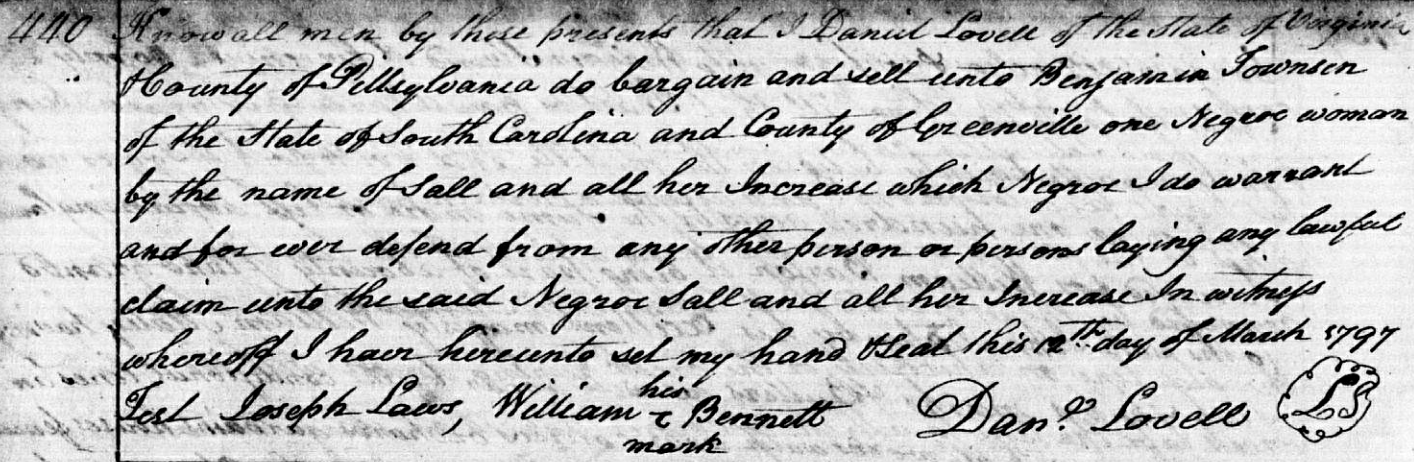 440 Know all men by these presents that I Daniel Lovell of the State of Virginia
& County of Pittsylvania do bargain and sell unto Benjamin Townsen
of the State of South Carolina and County of Greenville one Negroe woman
by the name of Sall and all her Increase which Negroe I do warrant
and for ever defend from any other person or persons laying any lawful
claim unto the said Negroe Sall and all her Increase In witness
whereoff I have hereunto set my hand & seal this 12th day of March 1797
his
Test Joseph Laws, William Bennett Danl. Lovell LS
mark